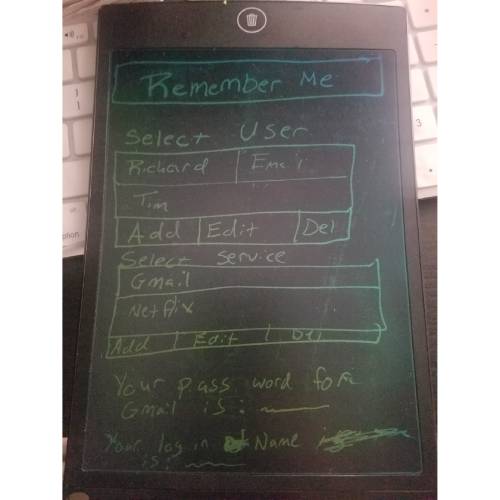 Remember Me
Select User
Richard Email
Tim
Add Edit Del
Select Service
Gmail
Netflix
Add Edit Del
Your pass word for
Gmail is:
Your log in Name
is:
option